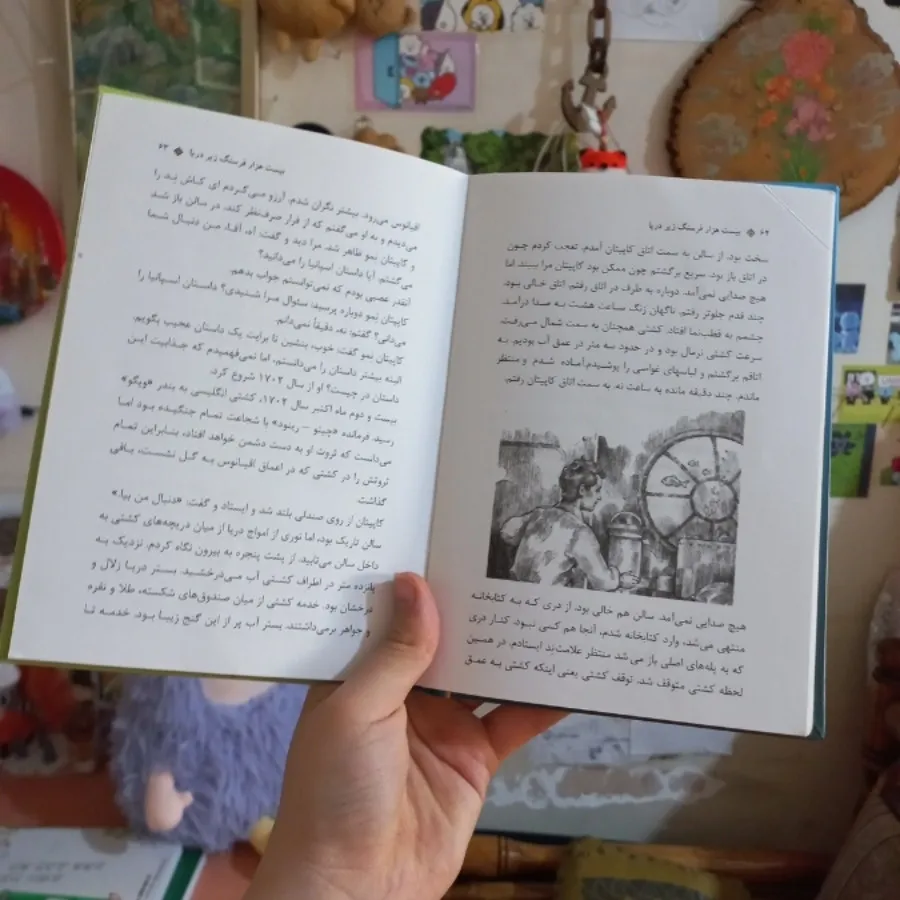 ۶۲ ❖ بیست هزار فرسنگ زیر دریا
سخت بود. از سالن به سمت اتاق کاپیتان آمدم. تعجب کردم چون
در اتاق باز بود. سریع برگشتم چون ممکن بود کاپیتان مرا ببیند اما
هیچ صدایی نمی‌آمد. دوباره به طرف در اتاق رفتم. اتاق خالی بود.
چند قدم جلوتر رفتم. ناگهان زنگ ساعت هشت به صدا درآمد.
چشمم به قطب‌نما افتاد. کشتی همچنان به سمت شمال می‌رفت.
سرعت کشتی نرمال بود و در حدود سه متر در عمق آب بودیم. به
اتاقم برگشتم و لباسهای غواصی را پوشیدم.آماده شدم و منتظر
ماندم. چند دقیقه مانده به ساعت نه، به سمت اتاق کاپیتان رفتم.
هیچ صدایی نمی‌آمد. سالن هم خالی بود. از دری که به کتابخانه
منتهی می‌شد، وارد کتابخانه شدم. آنجا هم کسی نبود. کنار دری
که به پله‌های اصلی باز می‌شد منتظر علامت‌ند ایستادم. در همین
لحظه کشتی متوقف شد. توقف کشتی یعنی اینکه کشتی به عمق
بیست هزار فرسنگ زیر دریا ❖ ۶۳
اقیانوس می‌رود. بیشتر نگران شدم. آرزو می‌کردم ای کاش نِد را
می‌دیدم و به او می‌گفتم که از فرار صرف‌نظر کند. در سالن باز شد
و کاپیتان نمو ظاهر شد. مرا دید و گفت: آه، آقا، من دنبال شما
می‌گشتم. آیا داستان اسپانیا را می‌دانید؟
آنقدر عصبی بودم که نمی‌توانستم جواب بدهم.
کاپیتان نِمو دوباره پرسید: سئوال مرا شنیدی؟ داستان اسپانیا را
می‌دانی؟ گفتم: نه، دقیقاً نمی‌دانم.
کاپیتان نمو گفت: خوب، بنشین تا برایت یک داستان عجیب بگویم.
البته بیشتر داستان را می‌دانستم، اما نمی‌فهمیدم که جذابیت این
داستان در چیست؟ او از سال ۱۷۰۲ شروع کرد.
بیست و دوم ماه اکتبر سال ۱۷۰۲، کشتی انگلیسی به بندر «ویگو»
رسید. فرمانده «چیتو – رینود» با شجاعت تمام جنگیده بود اما
می‌دانست که ثروت او به دست دشمن خواهد افتاد، بنابراین تمام
ثروتش را در کشتی که در اعماق اقیانوس به گل نشست، باقی
گذاشت.
کاپیتان از روی صندلی بلند شد و ایستاد و گفت: «دنبال من بیا.»
سالن تاریک بود، اما نوری از امواج دریا از میان دریچه‌های کشتی به
داخل سالن می‌تابید. از پشت پنجره به بیرون نگاه کردم. نزدیک به
پانزده متر در اطراف کشتی آب می‌درخشید. بستر دریا زلال و
درخشان بود. خدمه کشتی از میان صندوق‌های شکسته، طلا و نقره
و جواهر برمی‌داشتند. بستر آب پر از این گنج زیبا بود. خدمه تا